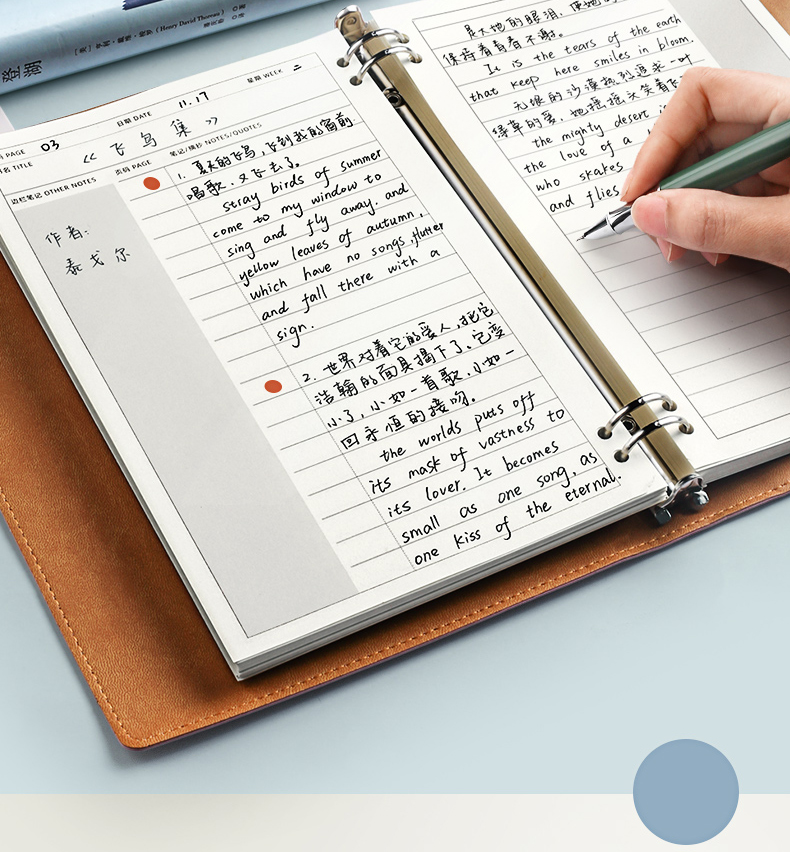 [美] 亨利·戴维·梭罗 (Henry David Thoreau) ◎著
登湖
PAGE 03
日期 DATE 11.17
星期 WEEK 二
名 TITLE 《飞鸟集》
边栏笔记 OTHER NOTES
页码 PAGE
笔记/摘抄 NOTES/QUOTES
作者:
泰戈尔
1. 夏天的飞鸟,飞到我的窗前
唱歌,又飞去了。
stray birds of summer
come to my window to
sing and fly away. and
yellow leaves of autumn,
which have no songs, flutter
and fall there with a
sign.
2. 世界对着它的爱人,把它
浩翰的面具揭下了。它变
小了,小如一首歌,小如一
回永恒的接吻。
the worlds puts off
its mask of vastness to
its lover. It becomes
small as one song, as
one kiss of the eternal.
是大地的眼泪,使她的
保持着青春不谢。
It is the tears of the earth
that keep here smiles in bloom.
无垠的沙漠热烈追求一叶
绿草的爱,她摇摇头笑着飞
the mighty desert is
the love of a
who shakes
and flies